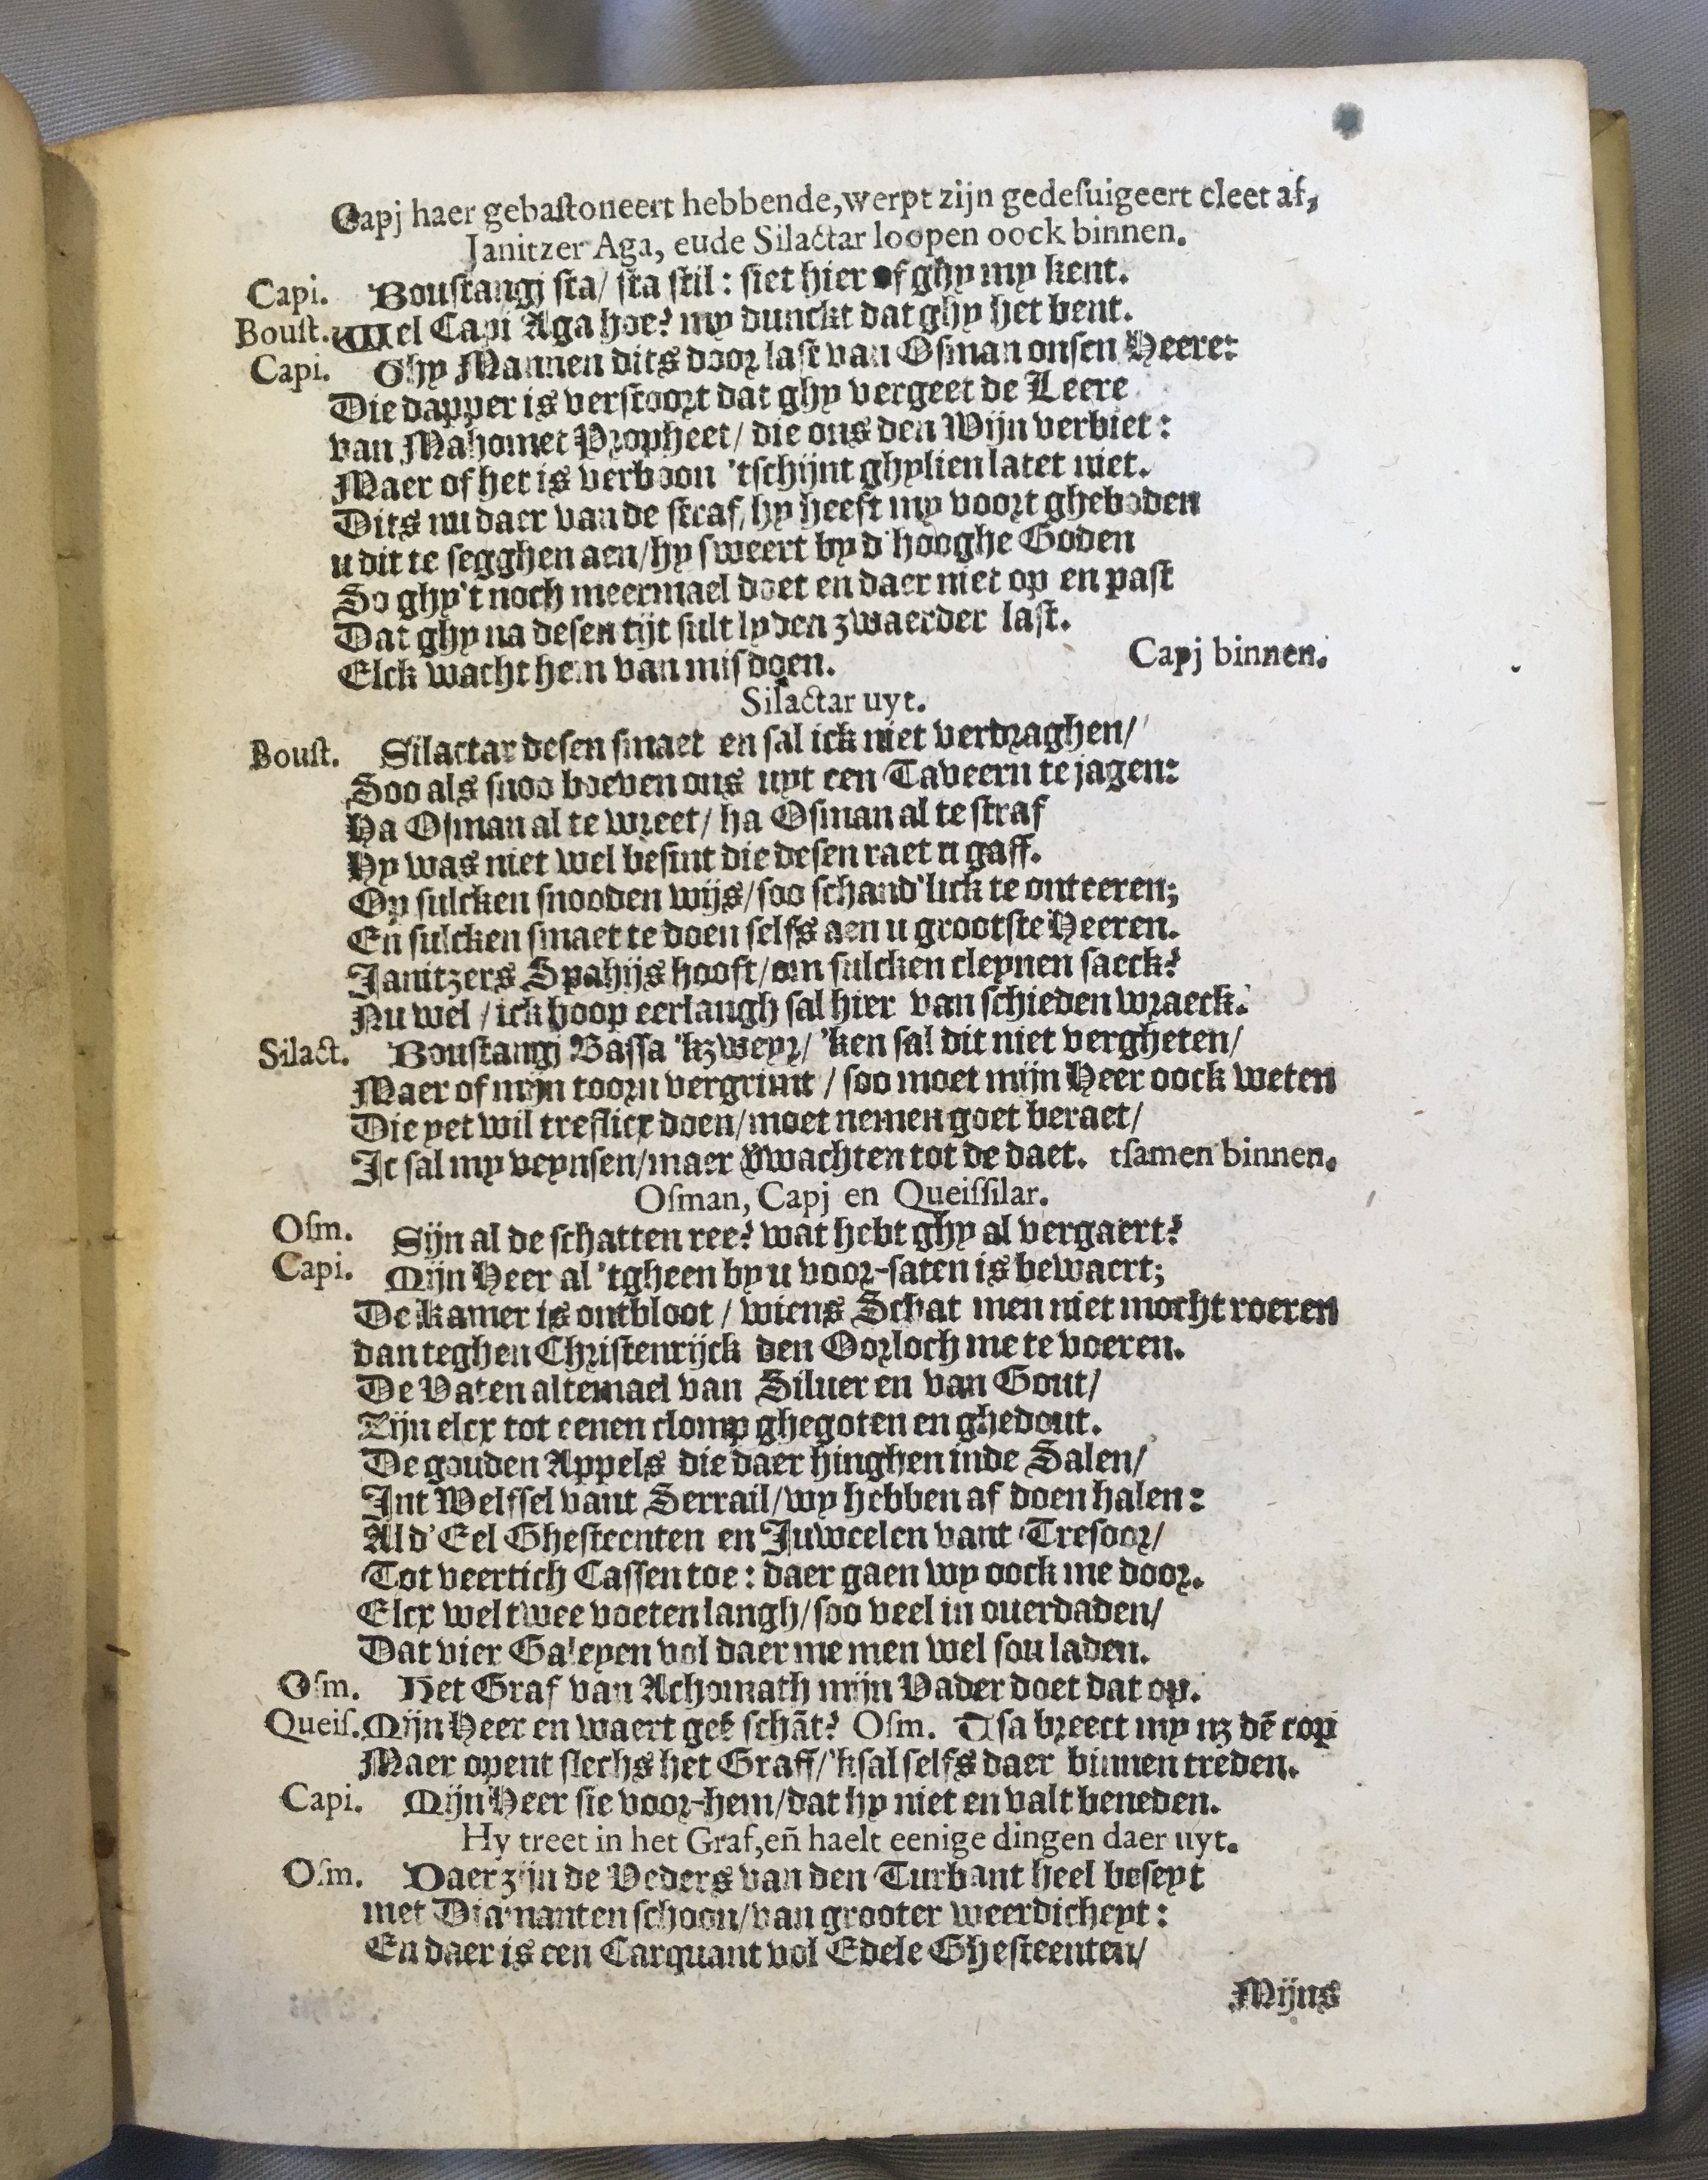 Capj haer gebastoneert hebbende, werpt zijn gedesuigeert cleet af,
Janitzer Aga, eude Silactar loopen oock binnen.
Capi. Boustangj sta/ sta stil: siet hier of ghy my kent.
Boust. Wel Capi Aga hoe? my dunckt dat ghy het bent.
Capi. Ghy Mannen dits door last van Osman onsen Heere:
Die dapper is verstoort dat ghy vergeet de Leere
van Mahomet Propheet/ die ons den Wijn verbiet:
Maer of het is verboon 'tschijnt ghylien latet niet.
Dits nu daer van de straf/ hy heeft my voort gheboden
u dit te segghen aen/ hy sweert by d'hooghe Goden
So ghy't noch meermael doet en daer niet op en past
Dat ghy na desen tijt sult lyden zwaerder last.
Elck wacht hem van misdoen. Capj binnen.
Silactar uyt.
Boust. Silactar desen smaet en sal ick niet verdraghen/
Soo als snoo boeven ons uyt een Taveern te jagen:
Ha Osman al te wreet/ ha Osman al te straf
Hy was niet wel besint die desen raet u gaff.
Op sulcken snooden wijs/ soo schand'lick te onteeren;
En sulcken smaet te doen selfs aen u grootste Heeren.
Janitzers Spahijs hooft/ om sulcken cleynen saeck?
Nu wel / ick hoop eerlangh sal hier van schieden wraeck.
Silact. Boustangj Bassa 'kzweyr/ 'ken sal dit niet vergheten/
Maer of mijn toorn vergrimt / soo moet mijn Heer oock weten
Die yet wil treflicx doen/ moet nemen goet beraet/
Ic sal my veynsen/ maer Vwachten tot de daet. tsamen binnen.
Osman, Capj en Queissilar.
Osm. Sijn al de schatten ree? wat hebt ghy al vergaert?
Capi. Mijn Heer al 'tgheen by u voor-saten is bewaert;
De kamer is ontbloot / wiens Schat men niet mocht roeren
dan teghen Christenrijck den Oorloch me te voeren.
De Vaten altemael van Siluer en van Gout/
Zijn elcx tot eenen clomp ghegoten en ghedout.
De gouden Appels die daer hinghen inde Salen/
Int Welfsel vant Serrail/ wy hebben af doen halen:
Al d'Eel Ghesteenten en Juweelen vant Tresoor/
Tot veertich Cassen toe: daer gaen wy oock me door.
Elcx wel twee voeten langh/ soo veel in ouerdaden/
Dat vier Galeyen vol daer me men wel sou laden.
Osm. Het Graf van Achomath mijn Vader doet dat op.
Queis. Mijn Heer en waert geē schāt? Osm. Tsa breect my nz dē cop
Maer opent slechs het Graff/ 'ksal selfs daer binnen treden.
Capi. Mijn Heer sie voor-hem/ dat hy niet en valt beneden.
Hy treet in het Graf, eñ haelt eenige dingen daer uyt.
Osm. Daer zijn de Veders van den Turbant heel beseyt
met Diamanten schoon/ van grooter weerdicheyt:
En daer is een Carquant vol Edele Ghesteenten/
Mijns